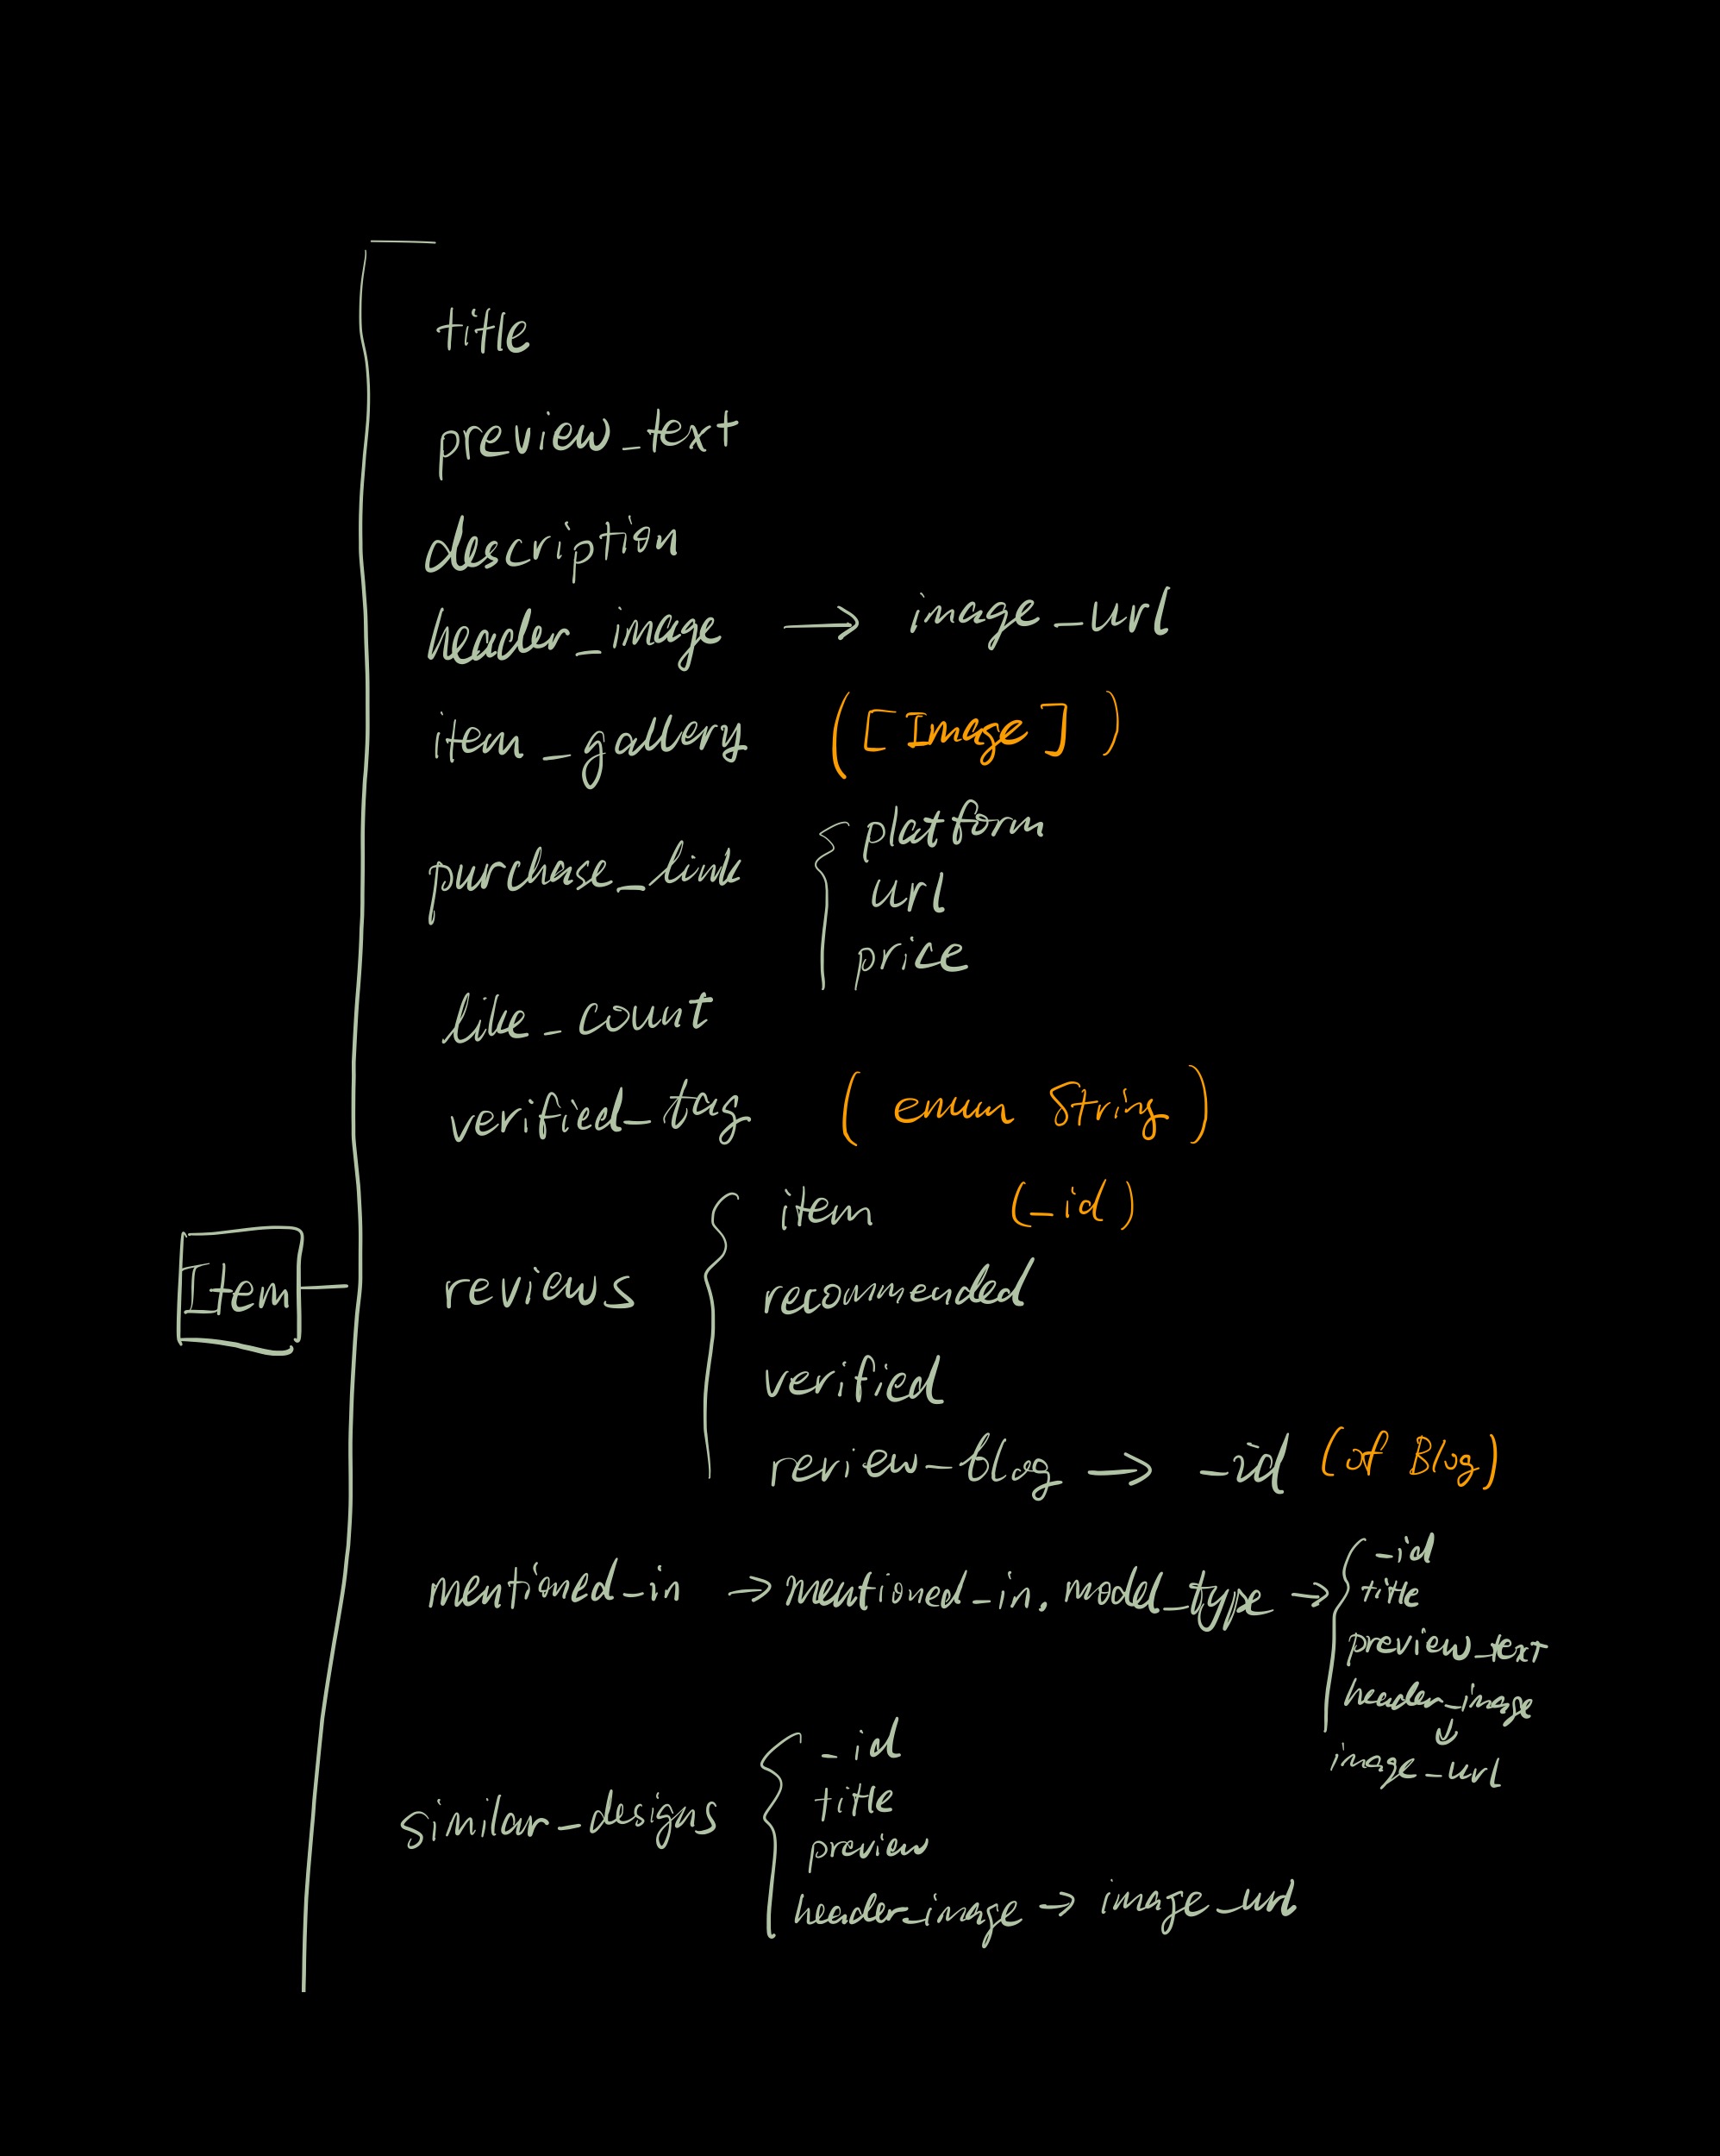 title
preview_text
description
header_image → image_url
item_gallery ([Image])
purchase_link
platform
url
price
like_count
verified_tag (enum String)
Item
reviews
item (_id)
recommended
verified
review_blog → _id (of Blog)
mentioned_in → mentioned_in.model_type →
_id
title
preview_text
header_image
↓
image_url
similar_designs
_id
title
preview
header_image → image_url